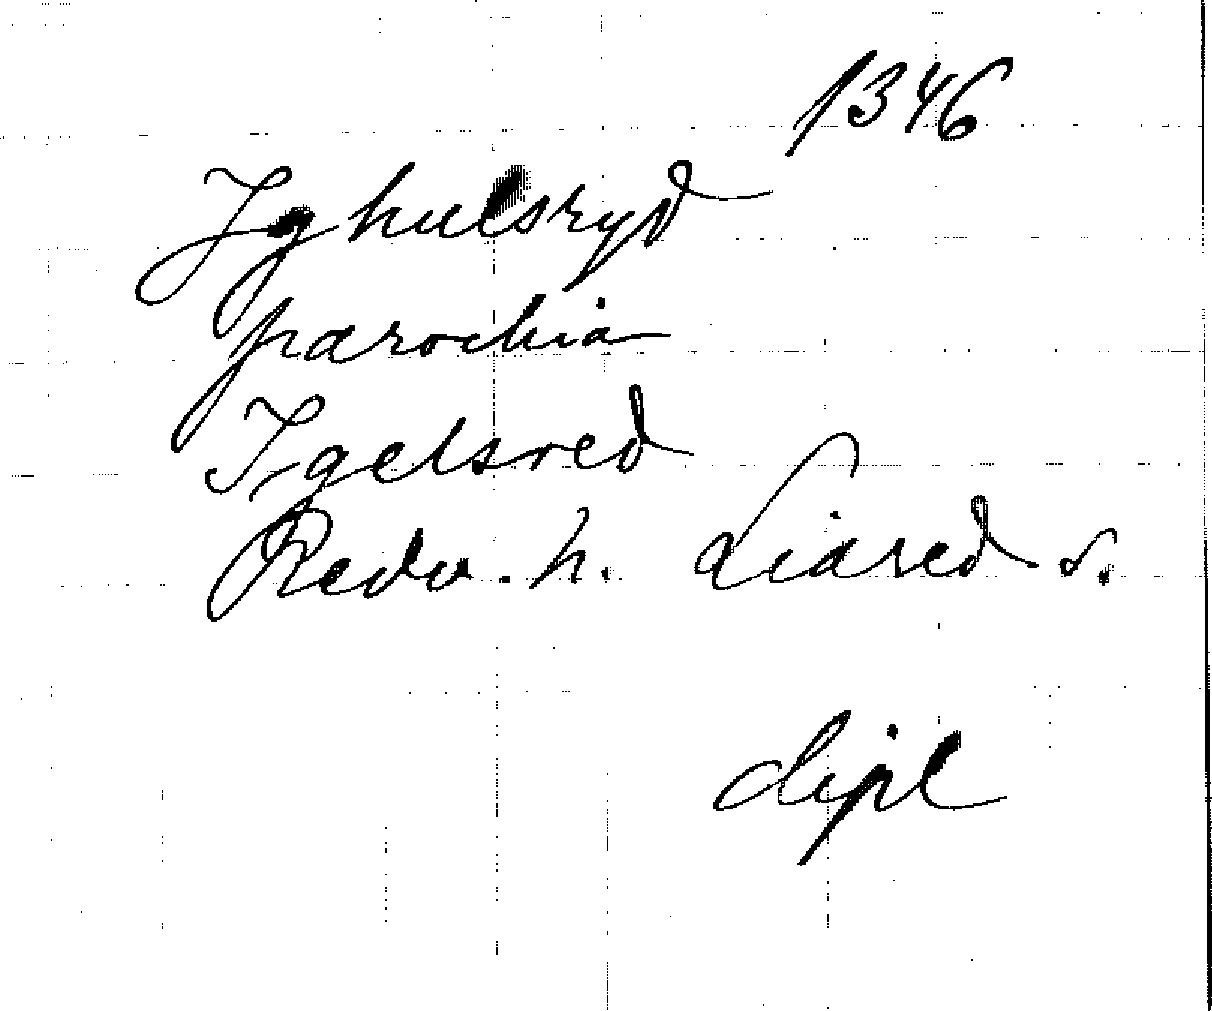 1346
Ighulsryd
parochia
Igelsred
Redv. h. Liared s.
dipl